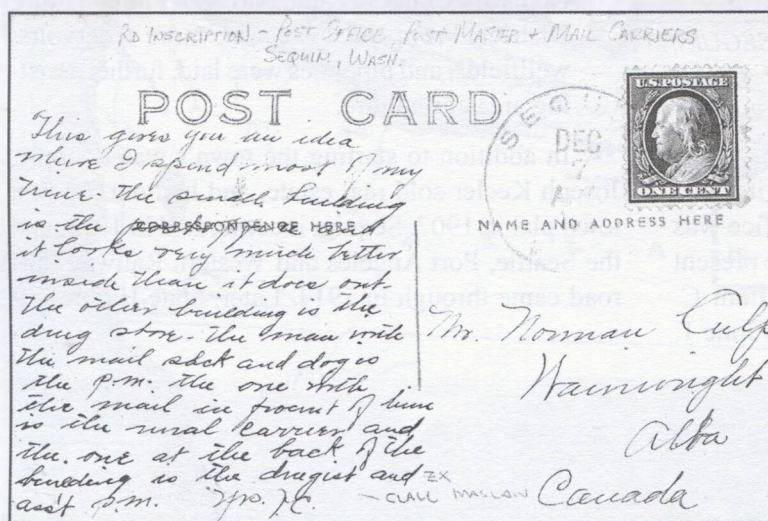 RD INSCRIPTION - POST OFFICE, POST MASTER + MAIL CARRIERS
SEQUIM, WASH.
POST CARD
SEQU
DEC
U.S. POSTAGE
ONE CENT
This gives you an idea
where I spend most of my
time. The small building
is the post office and
CORRESPONDENCE HERE
it looks very much better
inside than it does out.
The other building is the
drug store. The man with
the mail sack and dog is
the p.m. the one with
the mail in front of him
is the rural carrier and
the one at the back of the
building is the drugist and
ass't p.m.
NAME AND ADDRESS HERE
Mr. Norman Culp
Wainwright
Alba
Canada
EX
- CLALL MASLON